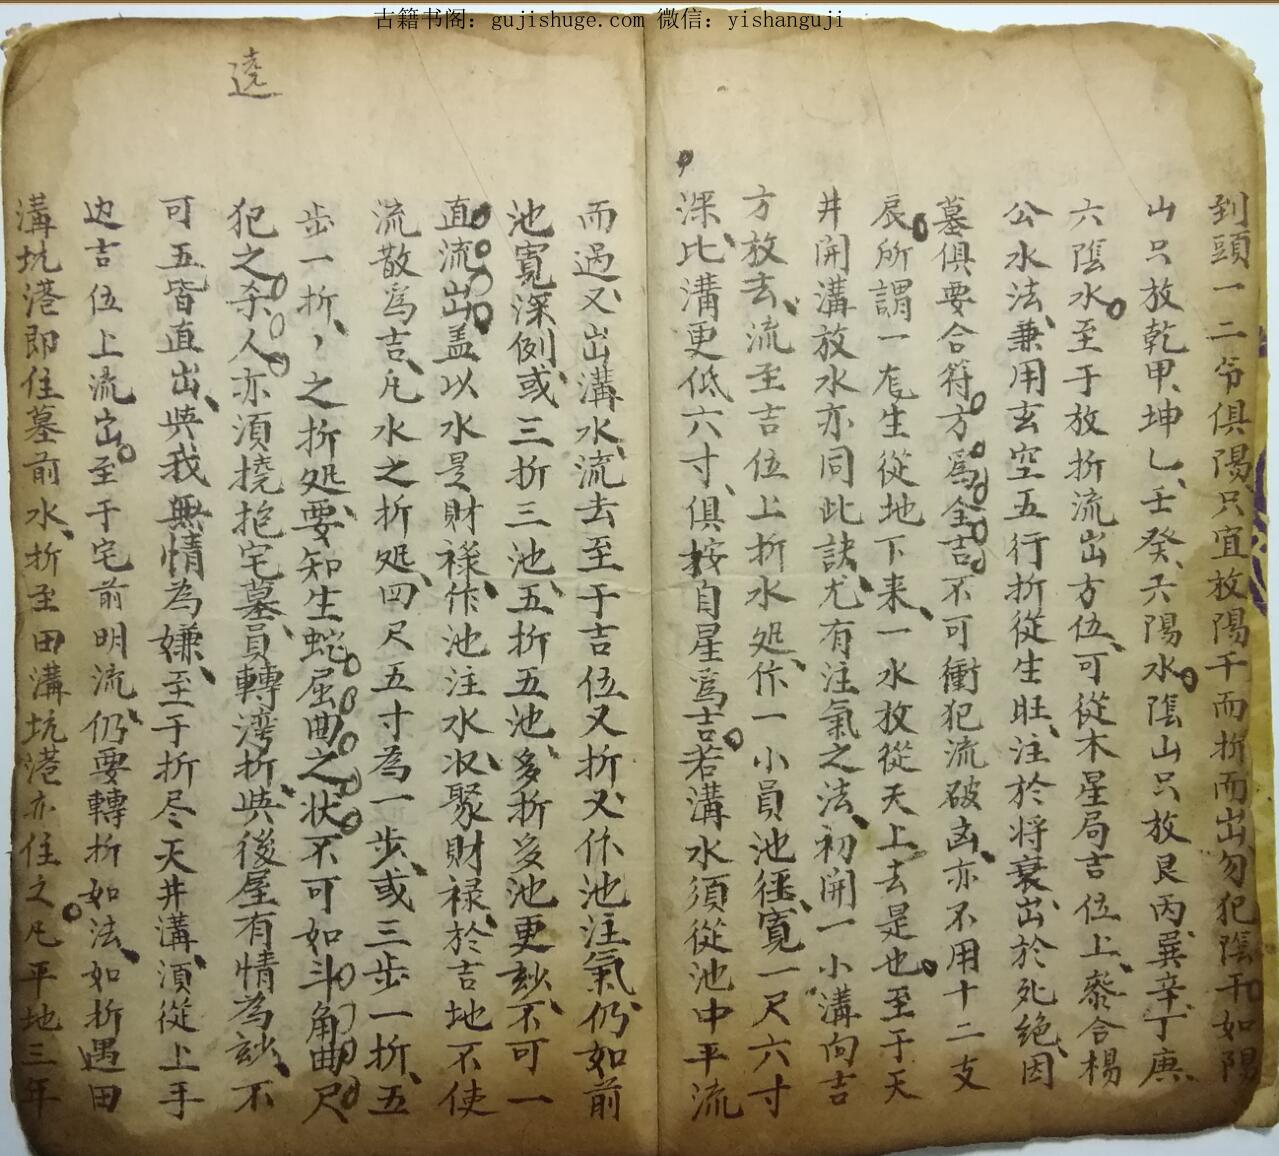 古籍书阁：gujishuge.com 微信：yishanguji
到頭一二爷俱陽只宜放陽干而折而出勿犯陰干如陽
山只放乾甲坤乚壬癸六陽水陰山只放艮丙巽辛丁庚
六陰水至于放折流出方位可從木星局吉位上叅合楊
公水法兼用玄空五行折從生旺注於將衰出於死絶因
墓俱要合符方為全吉不可衝犯流破凶亦不用十二支
辰所謂一𤓰生從地下来一水放從天上去是也至于天
井開溝放水亦同此訣尤有注氣之法初開一小溝向吉
方放去流至吉位上折水処作一小員池徑寬一尺六寸
深比溝更低六寸俱按自星爲吉若溝水須從池中平流
而過又出溝水流去至于吉位又折又作池注氣仍如前
池寬深例或三折三池五折五池多折多池更玅不可一
直流出盖以水是財禄作池注水収聚財禄於吉地不使
流散爲吉凢水之折処四尺五寸為一步或三步一折五
步一折之折処要知生蛇屈曲之状不可如斗角曲尺
犯之杀人亦須撓抱宅墓員轉湾折與後屋有情為玅不
遶
可五皆直出與我無情為嫌至于折尽天井溝須從上手
边吉位上流出至于宅前明流仍要轉折如法如折遇田
溝坑港即住墓前水折至田溝坑港亦住之凢平地三年